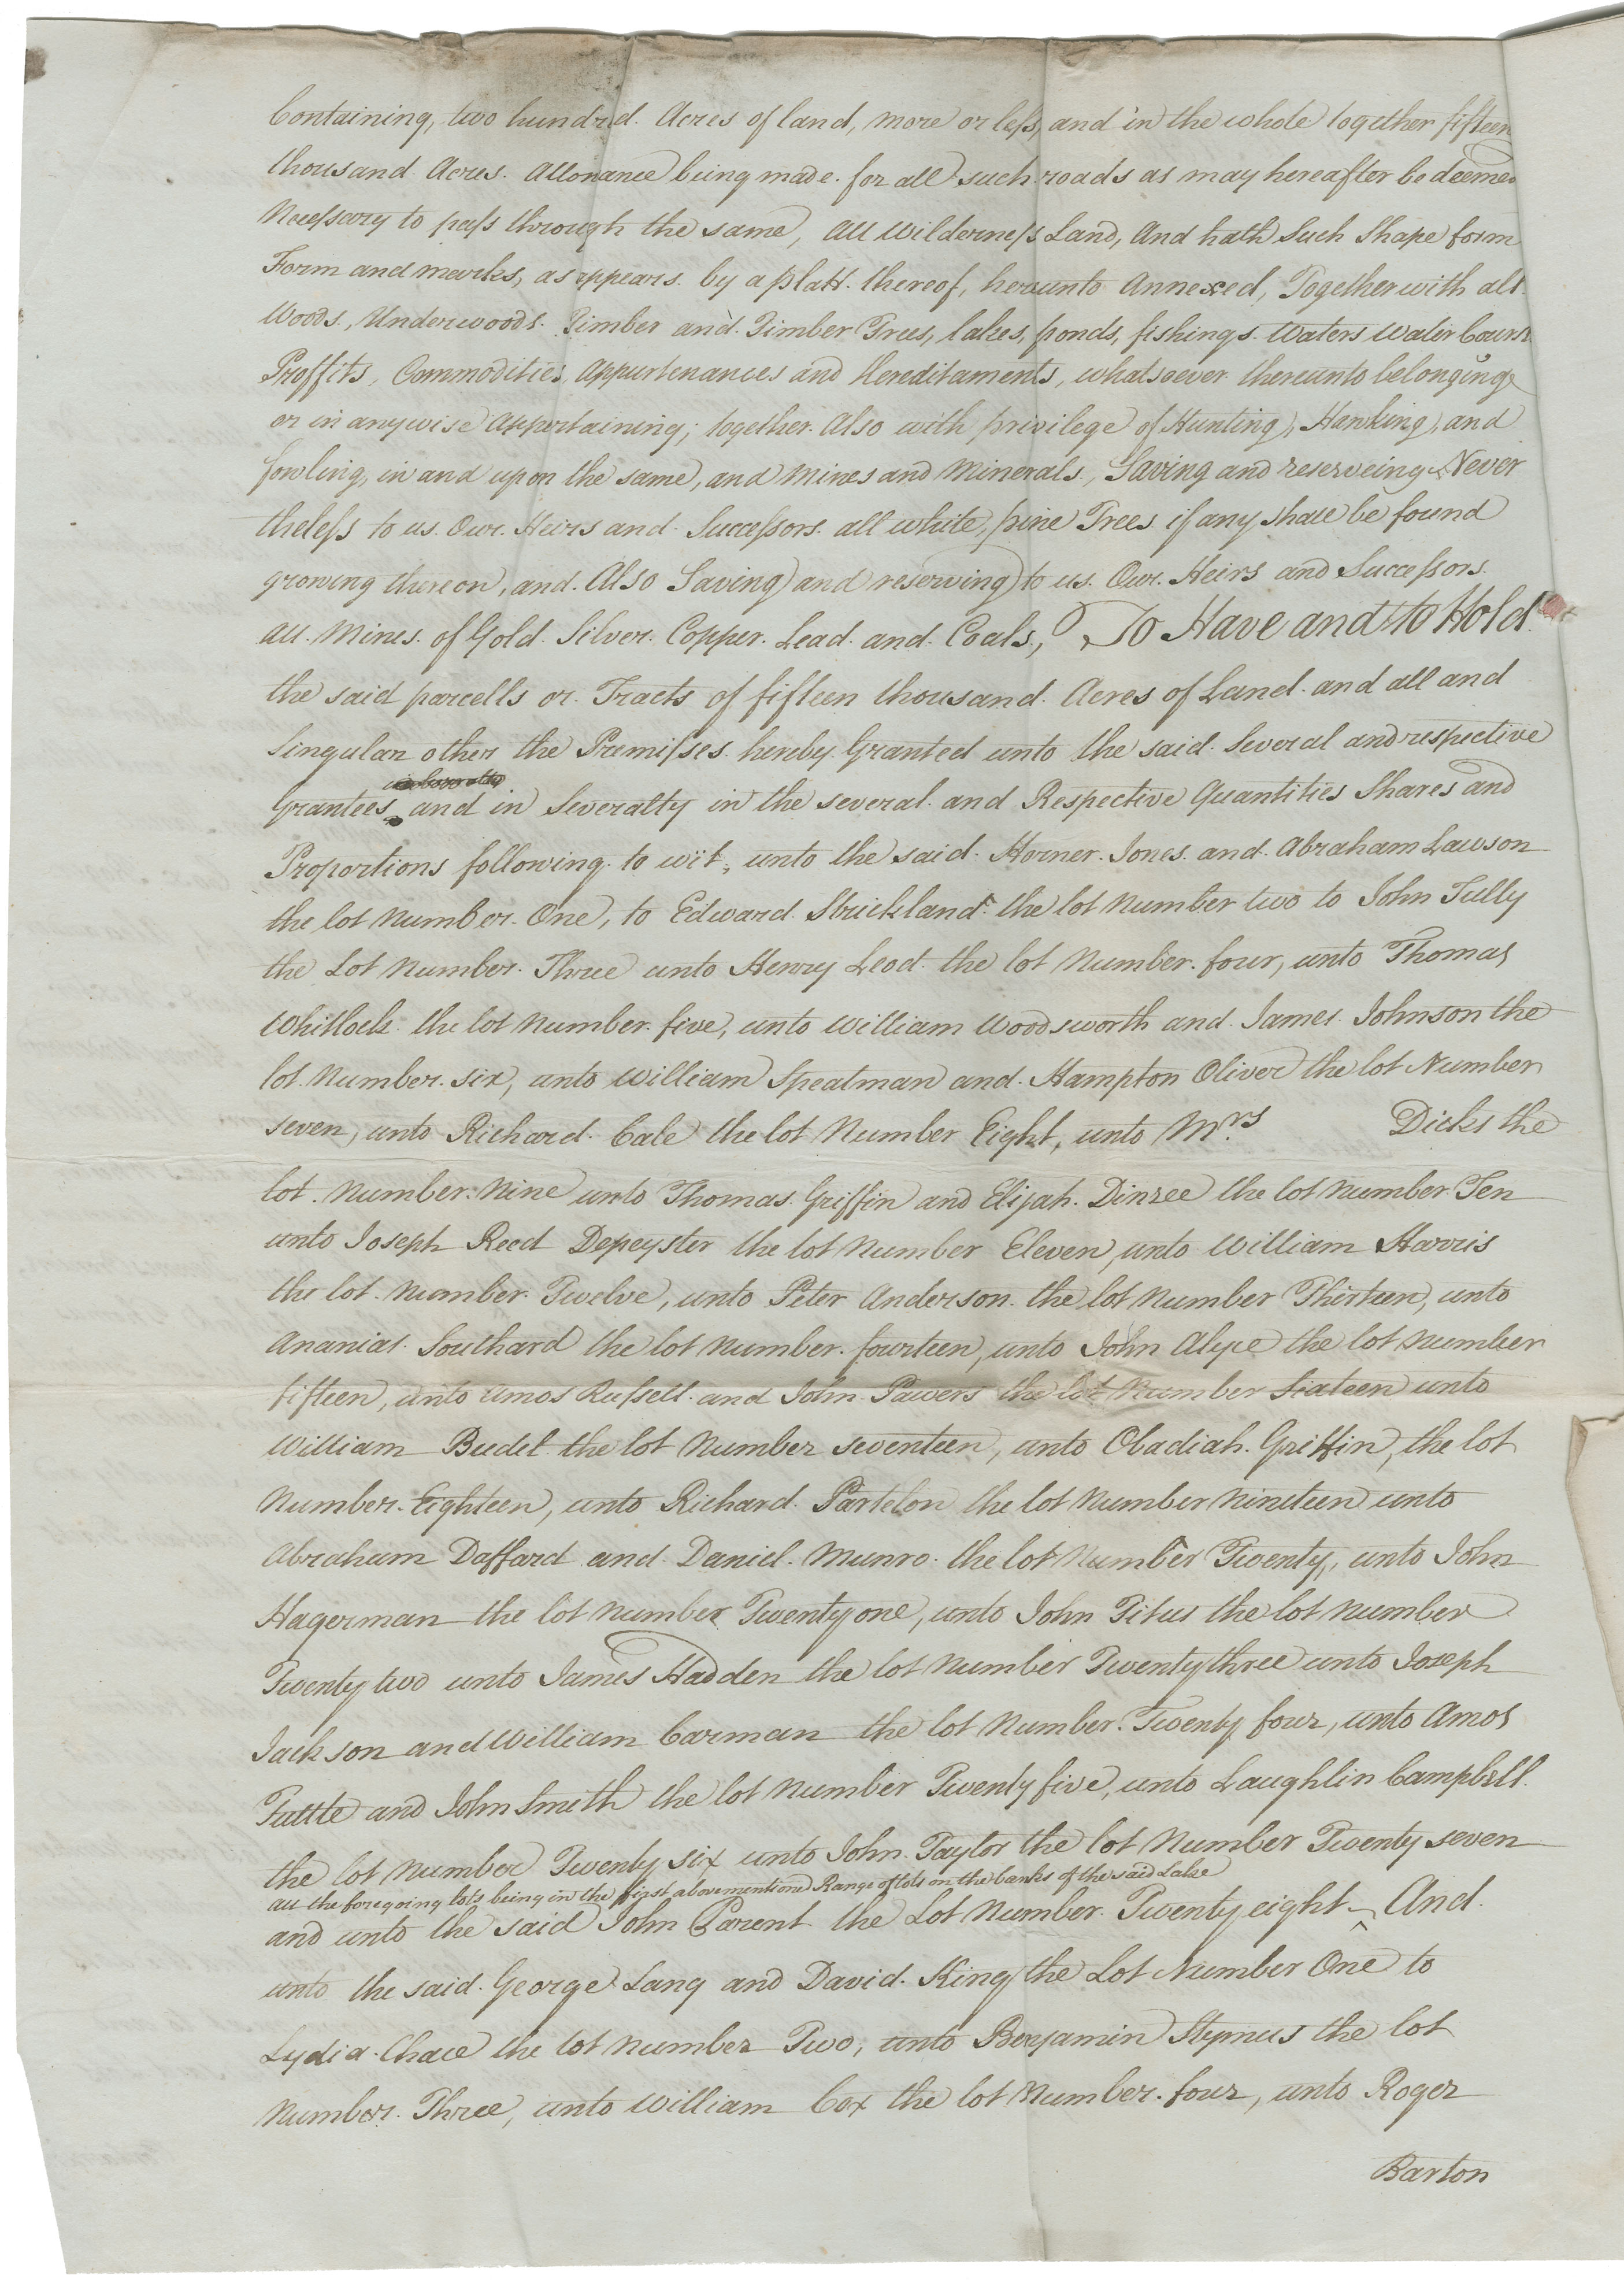 Containing, two hundred. Acres of land, more or less, and in the whole together fifteen
thousand Acres. Allowance being made. for all such roads as may hereafter be deemed
Necessary to pass through the same, all wilderness Land, And hath Such Shape form
Form and marks, as appears. by a platt. thereof, hereunto Annexed, Together with all
Woods, Underwoods. Timber and Timber Trees, lakes, ponds, fishings. Waters Water Course
Proffits, Commodities, Appurtenances and Hereditaments, whatsoever thereunto belonging
or in anywise Appertaining; together. Also with privilege of Hunting, Hawking, and
fowling, in and upon the same, and Mines and Minerals, Saving and reserveing Never
theless to us. Our. Heirs and Successors. all white, pine Trees if any shall be found
growing thereon, and. Also Saving and reserving to us. Our. Heirs and Successors.
All. Mines. of Gold. Silver. Copper. Lead. and. Coals, To Have and to Hold.
the said parcells or. Tracts of fifteen thousand. Acres of Land. and all and
Singular other the Premisses. hereby. Granted unto the said. Several and respective
Grantees and in Severalty in the several. and Respective Quantities Shares and
Proportions following. to wit, unto the said. Horner. Jones. and. Abraham Lawson
the lot Number. One, to Edward. Strickland. the lot Number two to John Tully
the Lot Number. Three unto Henry Leod. the lot Number. four, unto Thomas
Whitlock the lot Number. five, unto William Woodsworth and. James Johnson the
lot. Number. six, unto William Speatman and. Hampton Oliver the lot Number
seven, unto Richard. Cale the lot Number Eight, unto Mrs Dicks the
lot. Number. Nine unto Thomas. Griffin and Elijah. Dinzee the lot Number Ten
unto Joseph Reed Depeyster the lot Number Eleven, unto William Harris
the lot. Number. Twelve, unto Peter Anderson. the lot Number Thirteen, unto
Ananias. Southard the lot Number. fourteen, unto John Alyce the lot Number
fifteen, unto Amos Russell. and John. Pawers the lot Number Sixteen unto
William Budel the lot Number seventeen, unto Obadiah. Griffin, the lot
Number. Eighteen, unto Richard. Partelon the lot Number Nineteen unto
Abraham Daffard and. Daniel. Munro. the lot Number Twenty, unto John
Hagerman the lot Number Twenty one, unto John Titus the lot Number
Twenty two unto James Hadden the lot Number Twenty three unto Joseph
Jackson and William Carman the lot Number. Twenty four, unto Amos
Tuttle and John Smith the lot Number Twenty five, unto Laughlin Campbell.
the lot Number Twenty six unto John. Taylor the lot Number Twenty seven
all the foregoing lots being in the first abovementioned Range of lots on the banks of the said Lake
and unto the said John Parent the Lot Number. Twenty eight ^ And.
unto the said. George Lang and David. King the Lot Number One to
Lydia. Chace the lot Number Two, unto Benjamin Stymus the lot
Number. Three, unto William Cox the lot Number. four, unto Roger
Barton